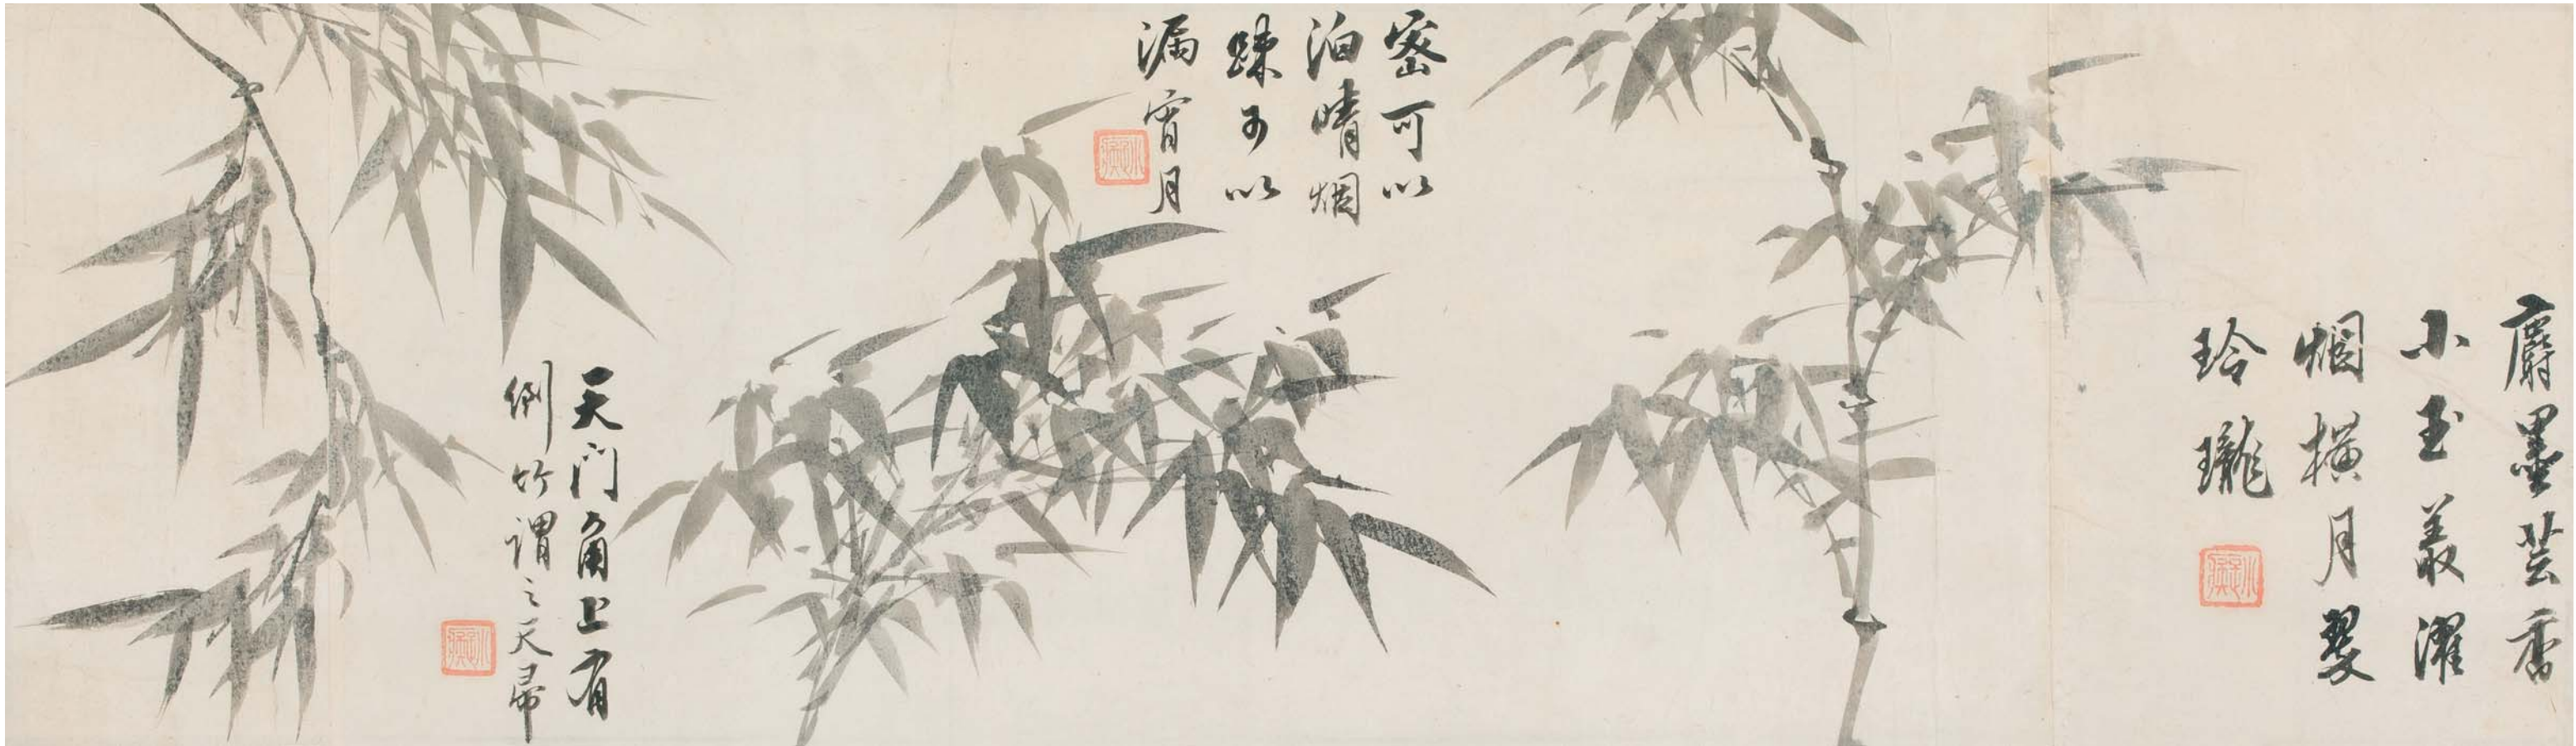 麝墨芸香
小玉叢濯
烟橫月翠
玲瓏
密可以
泊晴烟
踈可以
漏宵月
天門角上有
倒竹謂之天帚